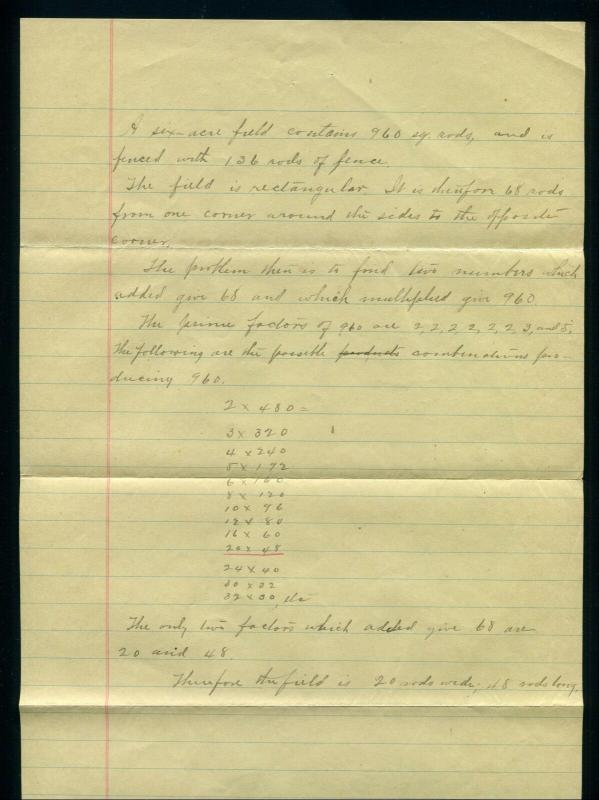 A six-acre field contains 960 sq. rods, and is
fenced with 136 rods of fence.
The field is rectangular. It is therefore 68 rods
from one corner around the sides to the opposite
corner.
The problem then is to find two numbers which
added give 68 and which multiplied give 960.
The prime factors of 960 are 2, 2, 2, 2, 2, 2, 3, and 5.
The following are the possible products combinations pro-
ducing 960.
2 × 480 =
3 × 320
4 × 240
5 × 192
6 × 160
8 × 120
10 × 96
12 × 80
16 × 60
20 × 48
24 × 40
30 × 32
32 × 30, etc
The only two factors which added give 68 are
20 and 48
Therefore the field is 20 rods wide, 48 rods long.